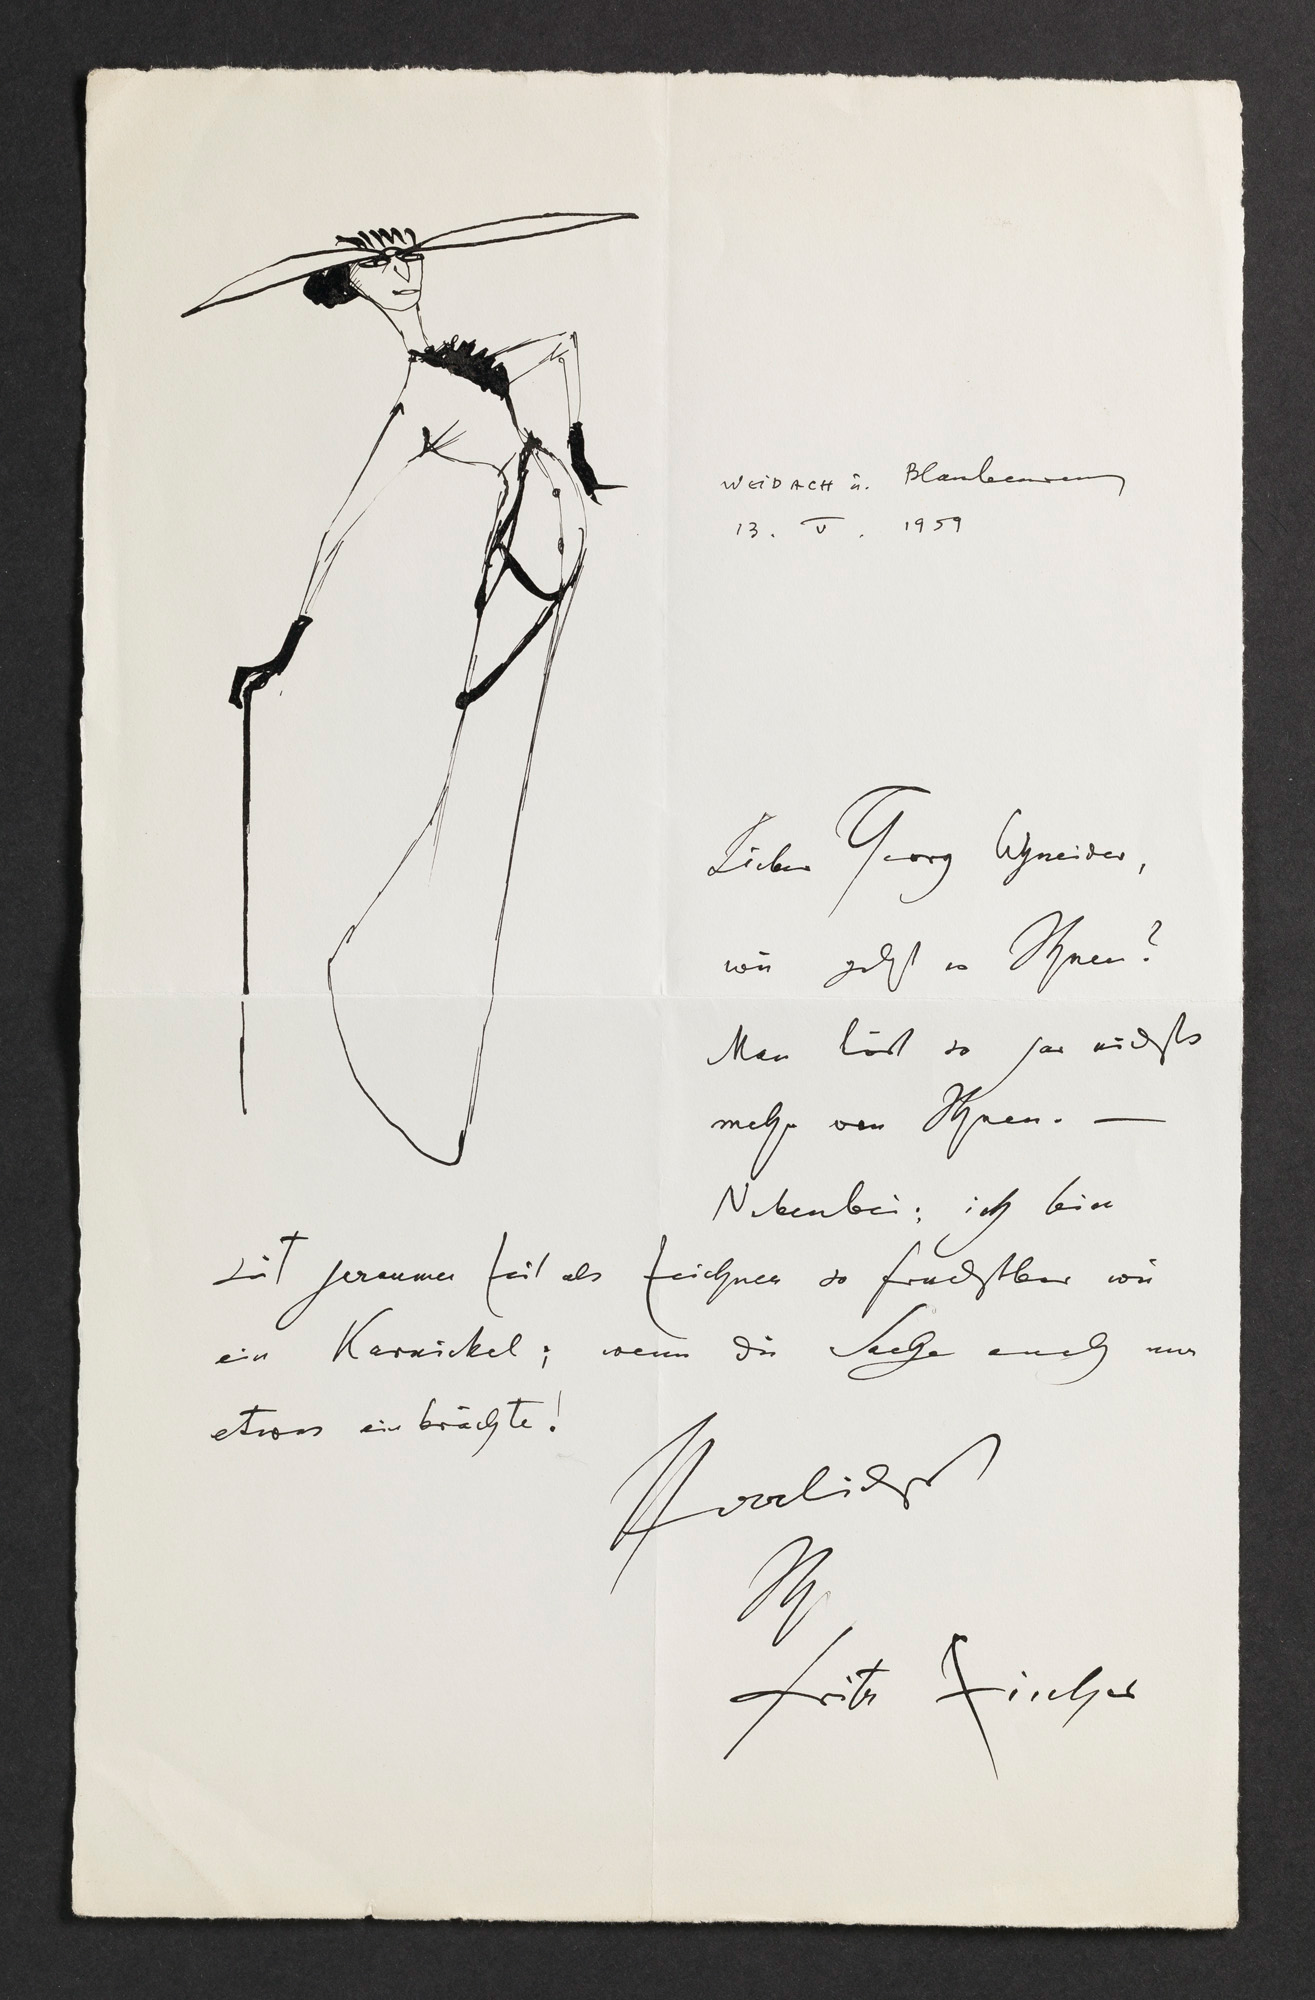 WEIDACH ü. Blaubeuren
13. V. 1959
Lieber Georg Schneider,
wie geht es Ihnen?
Man hört so gar nichts
mehr von Ihnen. —
Nebenbei: ich bin
seit geraumer Zeit als Zeichner so fruchtbar wie
ein Karnickel; wenn die Sache auch nur
etwas einbrächte!
Herzlichst
Ihr
Fritz Fischer